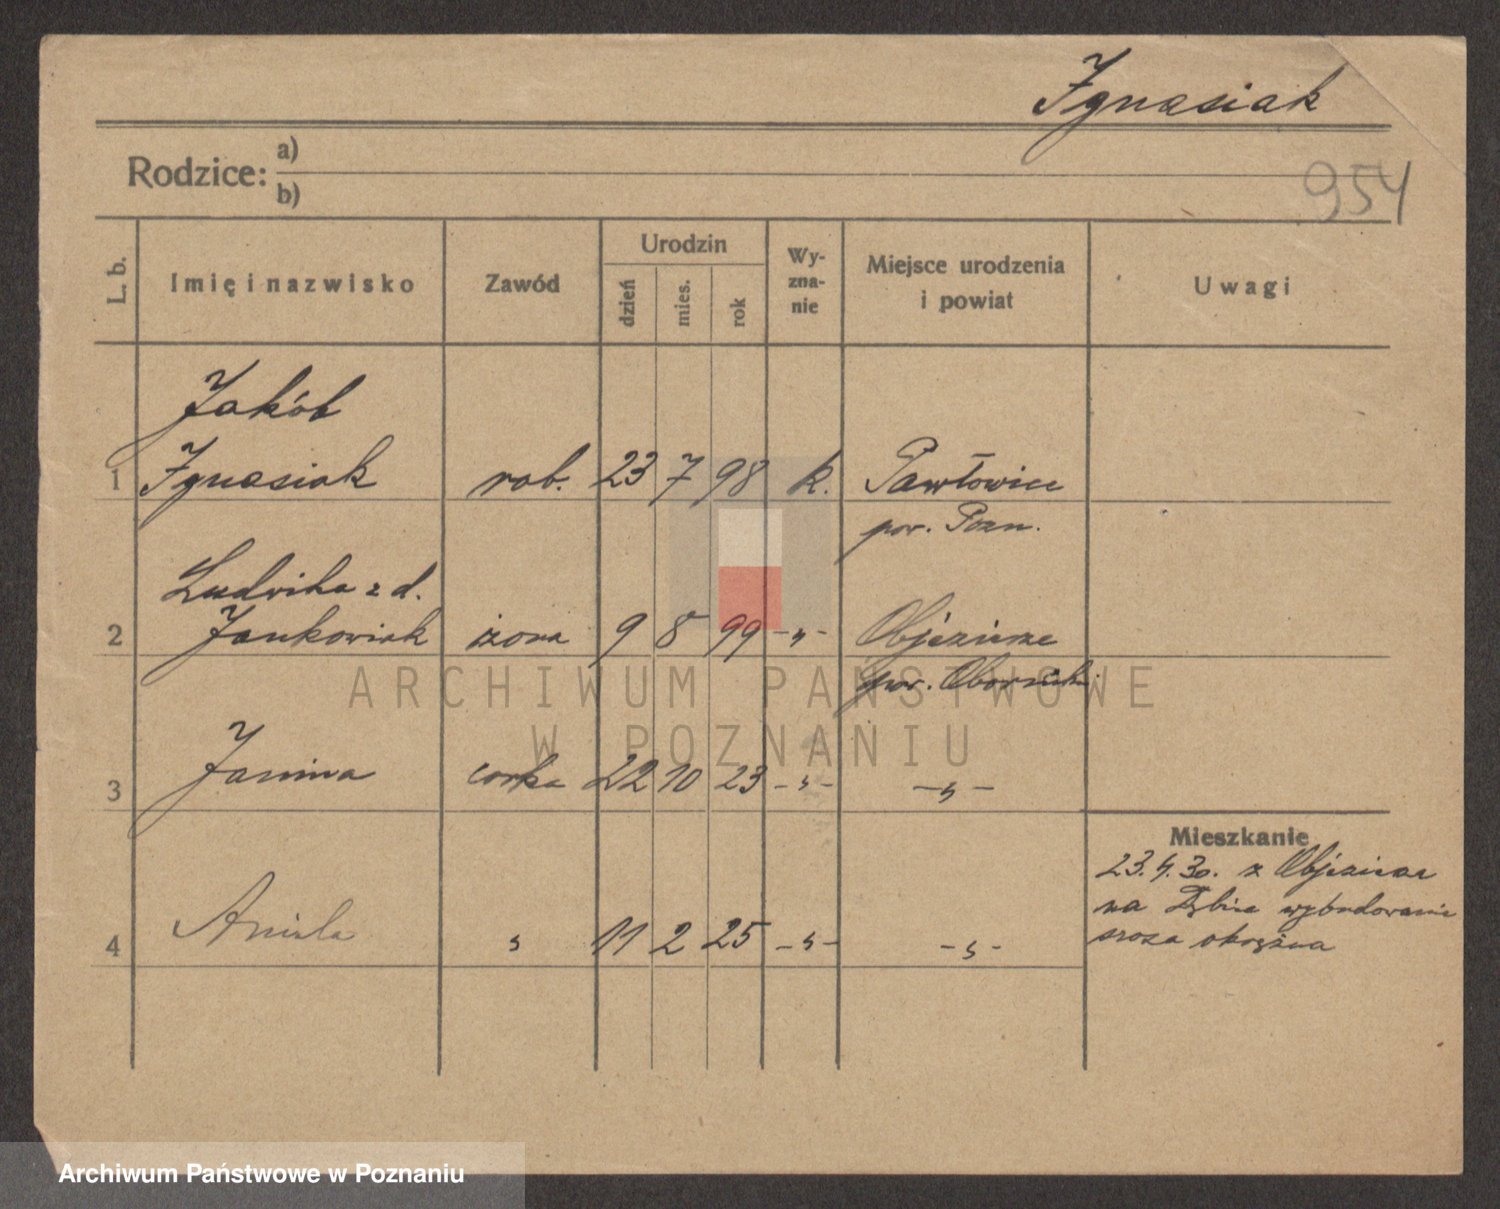 Ignasiak
Rodzice: a)
b)
954
L. b. Imię i nazwisko Zawód Urodzin dzień mies. rok Wy-zna-nie Miejsce urodzenia i powiat Uwagi
Jakób
1 Ignasiak rob. 23 7 98 k. Pawłowice
pow. Pozn.
Ludwika z d.
2 Jankowiak żona 9 8 99 -„- Objezierze
pow. Oborniki
3 Janina corka 22 10 23 -„- -„-
Mieszkanie
23.4.30. z Objezierza
na Dębiec wybudowanie
4 Aniela „ 11 2 25 -„- -„-
ARCHIWUM PAŃSTWOWE
W POZNANIU
Archiwum Państwowe w Poznaniu